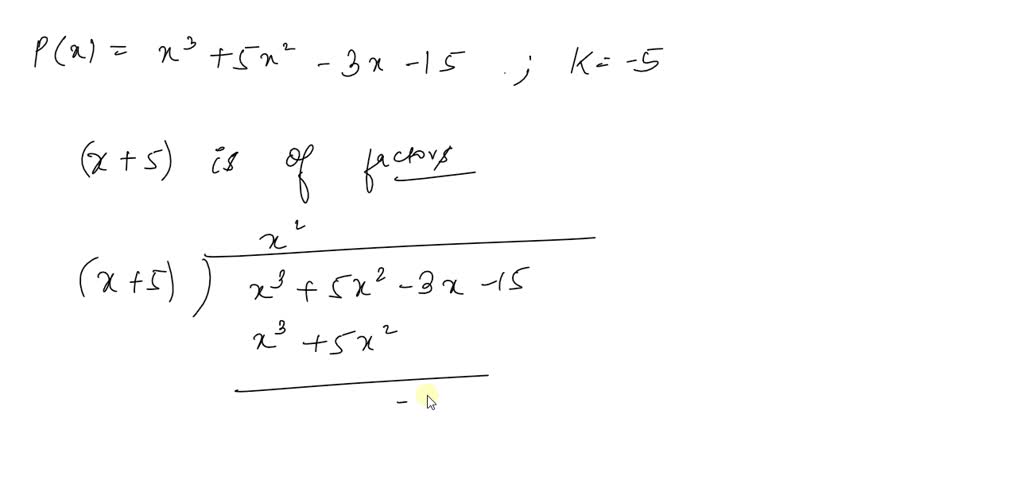 P(x) = x³ + 5x² - 3x - 15 ; K = -5
(x + 5) is of factors
x²
(x + 5) ) x³ + 5x² - 3x - 15
x³ + 5x²
-